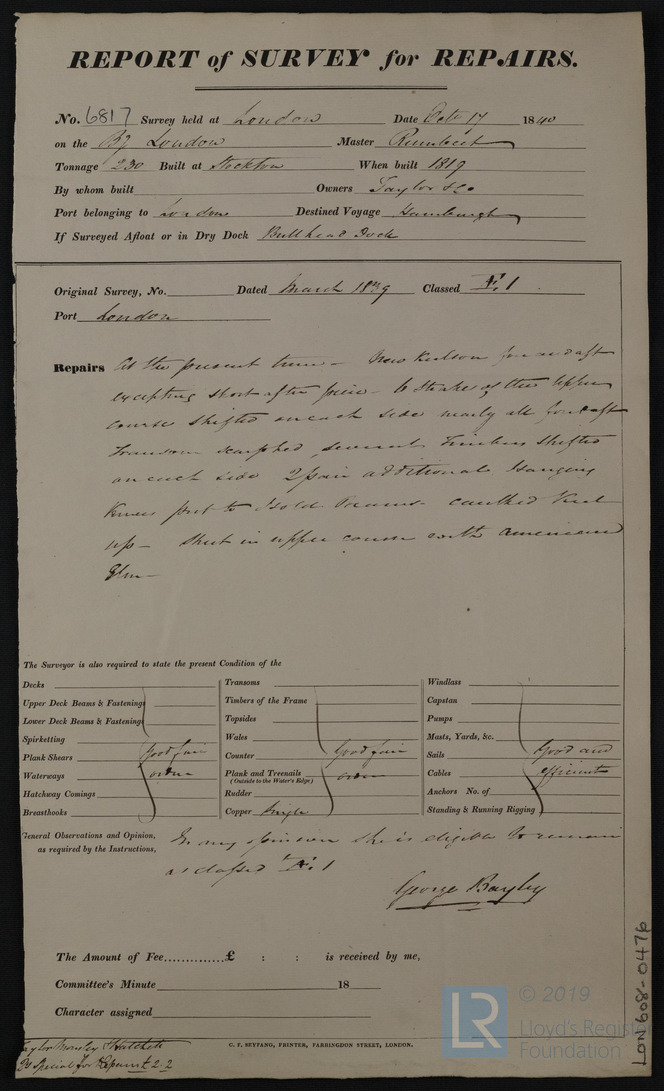 REPORT of SURVEY for REPAIRS.
No. 6817 Survey held at London Date Octr 17 1840
on the Bg London Master
Tonnage 230 Built at Stockton When built 1819
By whom built Owners Taylor & Co
Port belonging to London Destined Voyage Hamburgh
If Surveyed Afloat or in Dry Dock Bullhead Dock
Original Survey, No. Dated March 1839 Classed Æ.1
Port London
Repairs At the present time – New Keelson fore and aft
excepting short after piece – 6 Strakes of the upper
course shifted on each side nearly all fore & aft
Transom scarphed, several Timbers shifted
on each side 2 pair additional Hanging
Knees put to Hold Beams – caulked Keel
up – Shut in upper course with American
Elm –
The Surveyor is also required to state the present Condition of the
Decks
Upper Deck Beams & Fastenings
Lower Deck Beams & Fastenings
Spirketting
Plank Shears Good fair
Waterways order
Hatchway Comings
Breasthooks
Transoms
Timbers of the Frame
Topsides
Wales
Counter Good fair
Plank and Treenails order
(Outside to the Water's Edge)
Rudder
Copper Single
Windlass
Capstan
Pumps
Masts, Yards, &c.
Sails Good and
Cables efficient
Anchors No. of
Standing & Running Rigging
General Observations and Opinion, In my opinion she is eligible to remain
as required by the Instructions, as classed Æ.1
George Bayley
The Amount of Fee..............£ : : is received by me,
Committee's Minute 18
Character assigned
C. F. SEYFANG, PRINTER, FARRINGDON STREET, LONDON.
Special for Repairs £2 2
LON 608-0476
LR
© 2019
Lloyd's Register
Foundation